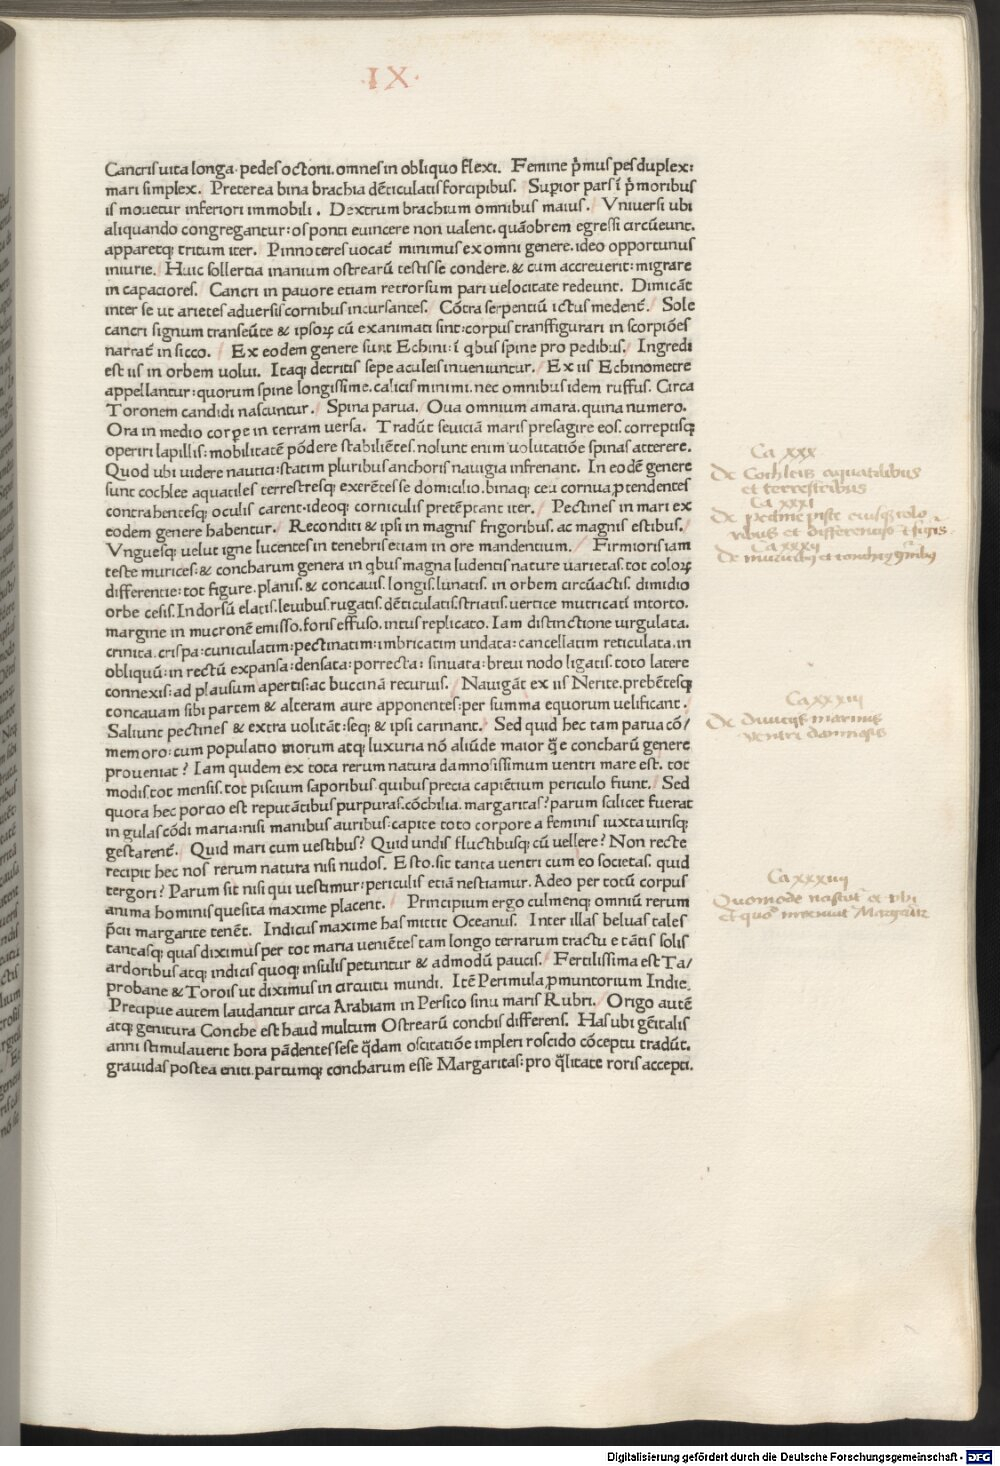 ·IX·
Cancris uita longa. pedes octoni. omnes in obliquo flexi. Femine p̄mus pes duplex:
mari simplex. Preterea bina brachia dēticulatis forcipibus. Supior pars ī p̄moribus
is mouetur inferiori immobili. Dextrum brachium omnibus maius. Vniuersi ubi
aliquando congregantur: os ponti euincere non ualent. quāobrem egressi circūeunt.
apparetq; tritum iter. Pinnoteres uocat̄ minimus ex omni genere. ideo opportunus
iniurie. Huic sollertia inanium ostrearū testis se condere. & cum accreuerit: migrare
in capaciores. Cancri in pauore etiam retrorsum pari uelocitate redeunt. Dimicāt
inter se ut arietes aduersis cornibus incursantes. Cōtra serpentiū ictus medent̄. Sole
cancri signum transeūte & ipsoꝝ cū exanimati sint: corpus transfigurari in scorpiōes
narrat̄ in sicco. Ex eodem genere sunt Echini: ī qbus spine pro pedibus. Ingredi
est iis in orbem uolui. Itaq; detritis sepe aculeis inueniuntur. Ex iis Echinometre
appellantur: quorum spine longissime. calicis minimi. nec omnibus idem ruffus. Circa
Toronem candidi nascuntur. Spina parua. Oua omnium amara. quina numero.
Ora in medio corꝑe in terram uersa. Tradūt seuiciā maris presagire eos. correptisq;
operiri lapillis: mobilitatē pōdere stabiliētes. nolunt enim uolutatiōe spinas atterere.
Quod ubi uidere nautici: statim pluribus anchoris nauigia infrenant. In eodē genere
sunt cochlee aquatiles terrestresq; exerētes se domicilio. binaq; ceu cornua ꝓtendentes
contrahentesq; oculis carent. ideoq; corniculis pretēptant iter. Pectines in mari ex
eodem genere habentur. Reconditi & ipsi in magnis frigoribus. ac magnis estibus.
Vnguesq; uelut igne lucentes in tenebris etiam in ore mandentium. Firmioris iam
teste murices: & concharum genera in qbus magna ludentis nature uarietas. tot coloꝝ
differentie: tot figure. planis. & concauis. longis. lunatis. in orbem circūactis. dimidio
orbe cesis. In dorsū elatis. leuibus. rugatis. dēticulatis. striatis. uertice mutricati intorto.
margine in mucronē emisso. foris effuso. intus replicato. Iam distinctione uirgulata.
crinita. crispa: cuniculatim: pectinatim: imbricatim undata: cancellatim reticulata. in
obliquū: in rectū expansa: densata: porrecta: sinuata: breui nodo ligatis. toto latere
connexis: ad plausum apertis: ac buccinā recuruis. Nauigāt ex iis Nerite. prebētesq;
concauam sibi partem & alteram aure apponentes: per summa equorum uelificant.
Saliunt pectines & extra uolitāt: seq; & ipsi carinant. Sed quid hec tam parua cō/
memoro: cum populatio morum atq; luxuria nō aliūde maior q̄ e concharū genere
proueniat? Iam quidem ex tota rerum natura damnosissimum uentri mare est. tot
modis. tot mensis. tot piscium saporibus. quibus precia capiētium periculo fiunt. Sed
quota hec porcio est reputātibus purpuras. cōchilia. margaritas? parum scilicet fuerat
in gulas cōdi maria: nisi manibus auribus: capite toto corpore a feminis iuxta uirisq;
gestarent̄. Quid mari cum uestibus? Quid undis fluctibusq; cū uellere? Non recte
recipit hec nos rerum natura nisi nudos. Esto. sit tanta uentri cum eo societas. quid
tergori? Parum sit nisi qui uestimur: periculis etiā uestiamur. Adeo per totū corpus
anima hominis quesita maxime placent. Principium ergo culmenq; omniū rerum
p̄cii margarite tenēt. Indicus maxime has mittit Oceanus. Inter illas beluas tales
tantasq; quas diximus per tot maria ueniētes tam longo terrarum tractu e tātis solis
ardoribus atq; indicis quoq; insulis petuntur & admodū paucis. Fertilissima est Ta/
probane & Torois ut diximus in circuitu mundi. Itē Perimula ꝓmuntorium Indie.
Precipue autem laudantur circa Arabiam in Persico sinu maris Rubri. Origo autē
atq; genitura Conche est haud multum Ostrearū conchis differens. Has ubi gēitalis
anni stimulauerit hora pādentes sese q̄dam oscitatiōe impleri roscido cōceptu tradūt.
grauidas postea eniti. partumq; concharum esse Margaritas: pro q̄litate roris accepti.
Ca xxx
De Cochleis aquatilibus
et terrestribus
Ca xxxi
De
Ca xxxij
De
Ca xxxiij
De diuitijs marinis
ventri damnosis
Ca xxxiiij
Quomodo nascūt̄ et vbi